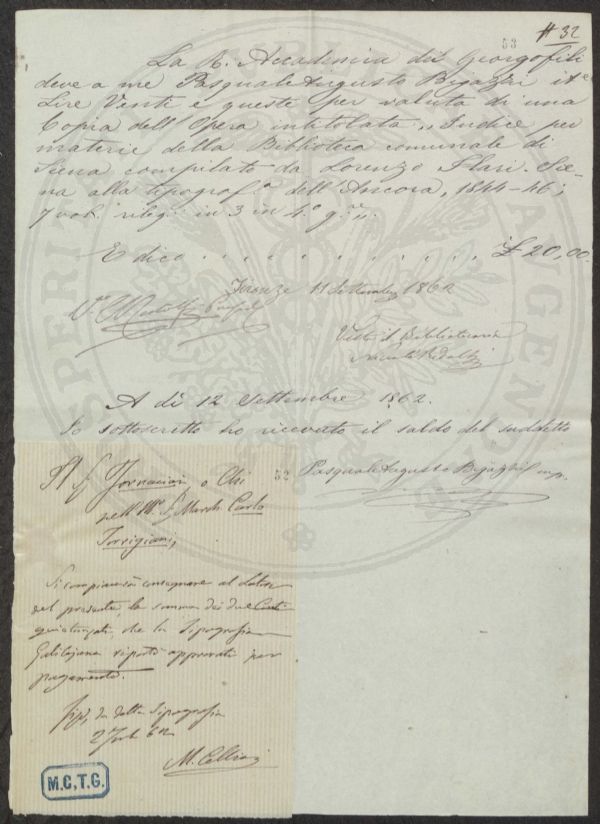 53 # 32
La R. Accademia dei Georgofili
deve a me Pasquale Augusto Bigazzi it.e
Lire Venti e queste per valuta di una
Copia dell'Opera intitolata „ Indice per
materie della Biblioteca comunale di
Siena compilato da Lorenzo Ilari. Sie-
na alla tipograf.a dell'Ancora, 1844-46;
7 vol. rileg. in 3 in 4.o g.e „.
E dico . . . . . . . . . . £ 20,00.
Firenze 11 Settembre 1862
V.o
Visto il Bibliotecario
Ridolfi
A dì 12 Settembre 1862.
Io sottoscritto ho ricevuto il saldo del suddetto
Pasquale Augusto Bigazzi mp.
52
Fornaciai o Chi
nell'Ill.e S. March. Carlo
Torrigiani,
Si compiacerà consegnare al Latore
del presente, la somma dei due Conti
quietanzati, che la Tipografia
Galilejana riportò approvati per
pagamento.
da detta Tipografia
2 62
M. Cellini
M.C.T.G.